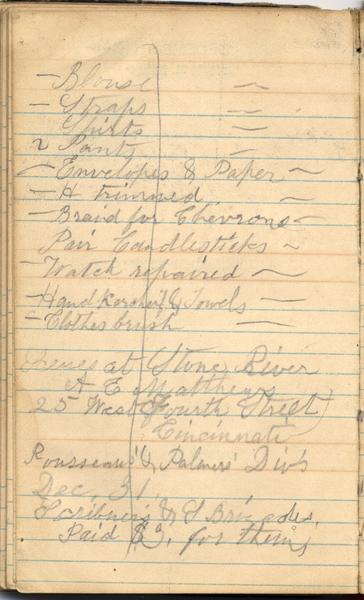 Blouse
Straps
Shirts
2 Pants
Envelopes & Paper
H trimmed
Braid for Chevrons
Pair Candlesticks
Watch repaired
Handkerchief & Towels
Clothes brush
at Stone River
A. E. Matthews
25 West Fourth Street
Cincinnati
Rousseau's & Palmers' Div's
Dec. 31
Scribner's & Brigades,
Paid $3. for them,